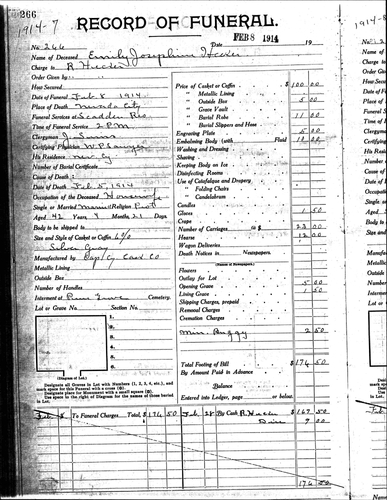 266
1914-7
RECORD OF FUNERAL.
FEB 8 1914
19
No. 266
Name of Deceased Emily Josephine Hecker
Charge to R. Hecker
Order Given by
How Secured
Date of Funeral Feb. 8 1914
Place of Death Nevada City
Funeral Services at Scadden Res
Time of Funeral Service 2 P.M.
Clergyman J. Sims
Certifying Physician W P Sawyer
His Residence Nev. Cy
Number of Burial Certificate
Cause of Death:
Date of Death Feb 5, 1914
Occupation of the Deceased Housewife
Single or Married Married Religion Prot
Aged 42 Years Months 21 Days
Body to be shipped to
Size and Style of Casket or Coffin 6/0
Silver Gray
Manufactured by Cap/Cy Cask Co
Metallic Lining
Outside Box
Number of Handles
Interment at Pine Grove Cemetery.
Lot or Grave No. Section No.
1.
2.
3.
4.
5.
6.
(Diagram of Lot.)
Designate all Graves in Lot with Numbers (1, 2, 3, 4, etc.), and
mark space for this Funeral with a cross
Designate place for Monument with a small square
Use space to the right of Diagram for the names of those buried
in Lot.
Price of Casket or Coffin $ 100 00
" Metallic Lining
" Outside Box 5 00
" Grave Vault
" Burial Robe 11 00
" Burial Slippers and Hose
Engraving Plate 5 00
Embalming Body (with Fluid
Washing and Dressing
Shaving
Keeping Body on Ice
Disinfecting Rooms
Use of Catafalque and Drapery
" Folding Chairs
" Candelabrum
Candles
Gloves 1 50
Crape
Number of Carriages @ $ 23 00
Hearse 12 00
Wagon Deliveries
Death Notices in Newspapers.
(Names of Newspapers)
Flowers
Outlay for Lot
Opening Grave 5 00
Lining Grave 1 50
Shipping Charges, prepaid
Removal Charges
Cremation Charges
Min. Buggy 2 50
Total Footing of Bill $ 176 50
By Amount Paid in Advance
Balance
Entered into Ledger, page or below.
Feb 8 To Funeral Charges Total, $ 176 50 Feb 28 By Cash R. Hecker 167 50
Disc 9 00
176 50